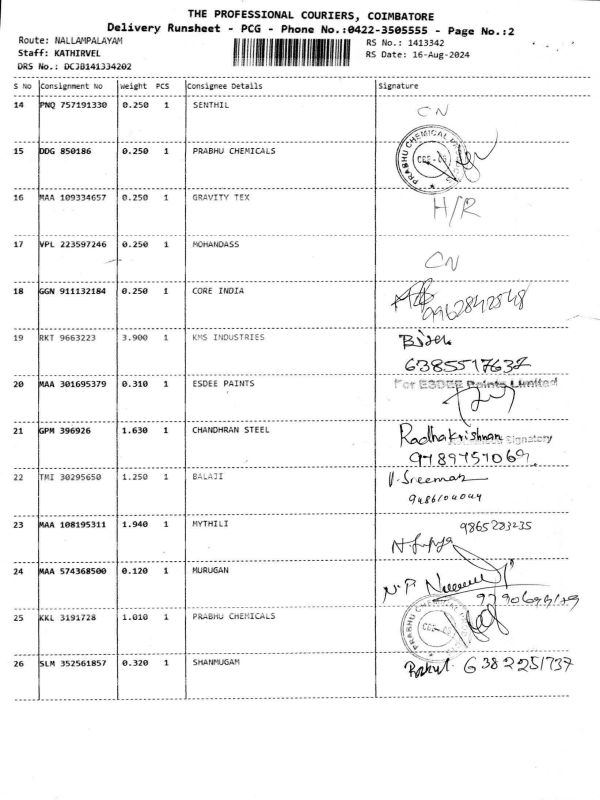 THE PROFESSIONAL COURIERS, COIMBATORE
Delivery Runsheet - PCG - Phone No.:0422-3505555 - Page No.:2
Route: NALLAMPALAYAM RS No.: 1413342
Staff: KATHIRVEL RS Date: 16-Aug-2024
DRS No.: DCJB141334202
S No Consignment No Weight PCS Consignee Details Signature
14 PNQ 757191330 0.250 1 SENTHIL CN
15 DDG 850186 0.250 1 PRABHU CHEMICALS PRABHU CHEMICAL
16 MAA 109334657 0.250 1 GRAVITY TEX H/R
17 VPL 223597246 0.250 1 MOHANDASS CN
18 GGN 911132184 0.250 1 CORE INDIA 9962842548
19 RKT 9663223 3.900 1 KMS INDUSTRIES
6385517637
20 MAA 301695379 0.310 1 ESDEE PAINTS For ESDEE Paints Limited
21 GPM 396926 1.630 1 CHANDHRAN STEEL Radhakrishnan Signatory
9789757069.
22 TMI 30295650 1.250 1 BALAJI
23 MAA 108195311 1.940 1 MYTHILI 9865283235
24 MAA 574368500 0.120 1 MURUGAN
25 KKL 3191728 1.010 1 PRABHU CHEMICALS PRABHU
26 SLM 352561857 0.320 1 SHANMUGAM 6382251737